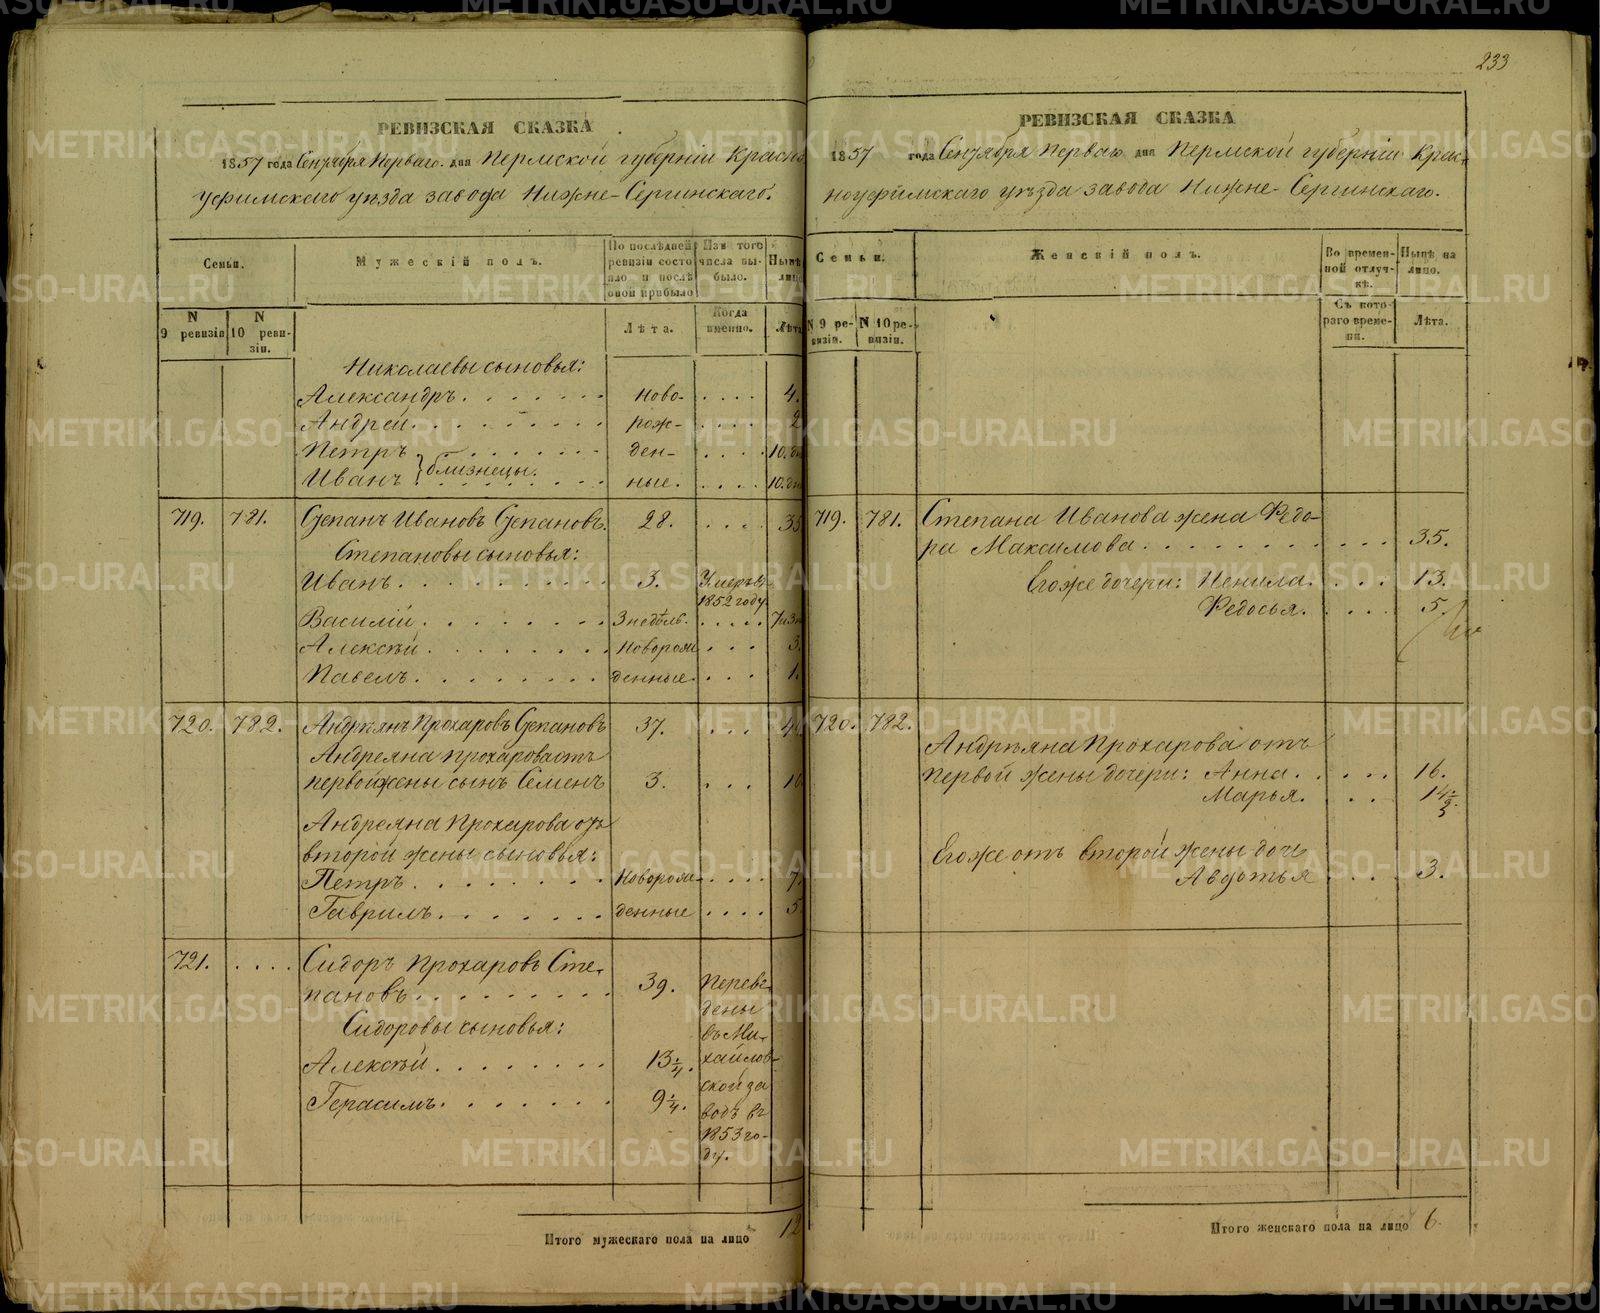 233
РЕВИЗСКАЯ СКАЗКА
1857 года Сентября Перваго дня Пермской губерніи Красно
уфимскаго уѣзда завода Нижне-Сергинскаго.
Семьи.
Мужескій полъ.
По послѣдней ревизіи состояло и послѣ оной прибыло
Изъ того числа выбыло.
Нынѣ лицо
N 9 ревизіи
N 10 ревизіи.
Лѣта.
Когда именно.
Лѣта
Николаевы сыновья:
Александръ. ново- 4.
Андрей. рож- 2
Петръ ден- 10. дн
Иванъ близнецы. ные. 10. дн
719. 781. Степанъ Ивановъ Степановъ. 28. 35
Степановы сыновья:
Иванъ. 3. Умеръ въ 1852 году.
Василій. 3 недѣль.
Алексѣй. Новорож 3.
Павелъ. денные. 1.
720. 782. Андріянъ Прохаровъ Степановъ 37.
Андреяна Прохарова отъ
первой жены сынъ Семенъ 3. 10
Андреяна Прохарова отъ
второй жены сыновья:
Петръ. Новорож- 7.
Гаврилъ. денные 5.
721. Сидоръ Прохаровъ Сте-
пановъ. 39. Переве-
дены
въ Ми-
хайлов-
ской за
водъ въ
1853 го-
ду.
Сидоровы сыновья:
Алексѣй. 13 1/4.
Герасимъ. 9 1/4.
Итого мужескаго пола на лицо 12
РЕВИЗСКАЯ СКАЗКА
1857 года Сентября Перваго дня Пермской губерніи Крас-
ноуфимскаго уѣзда завода Нижне-Сергинскаго.
Семьи.
Женскій полъ.
Во временной отлучкѣ.
Нынѣ на лицо.
N 9 ревизіи.
N 10 ревизіи.
Съ котораго времени.
Лѣта.
719. 781. Степана Иванова жена Ѳедо-
ра Максимова. 35.
Его же дочери: Ненила. 13.
Ѳедосья. 5.
720. 782.
Андреяна Прохарова отъ
первой жены дочери: Анна. 16.
Марья.
Его же отъ второй жены дочь
Авдотья 3.
Итого женскаго пола на лицо 6.
METRIKI.GASO-URAL.RU